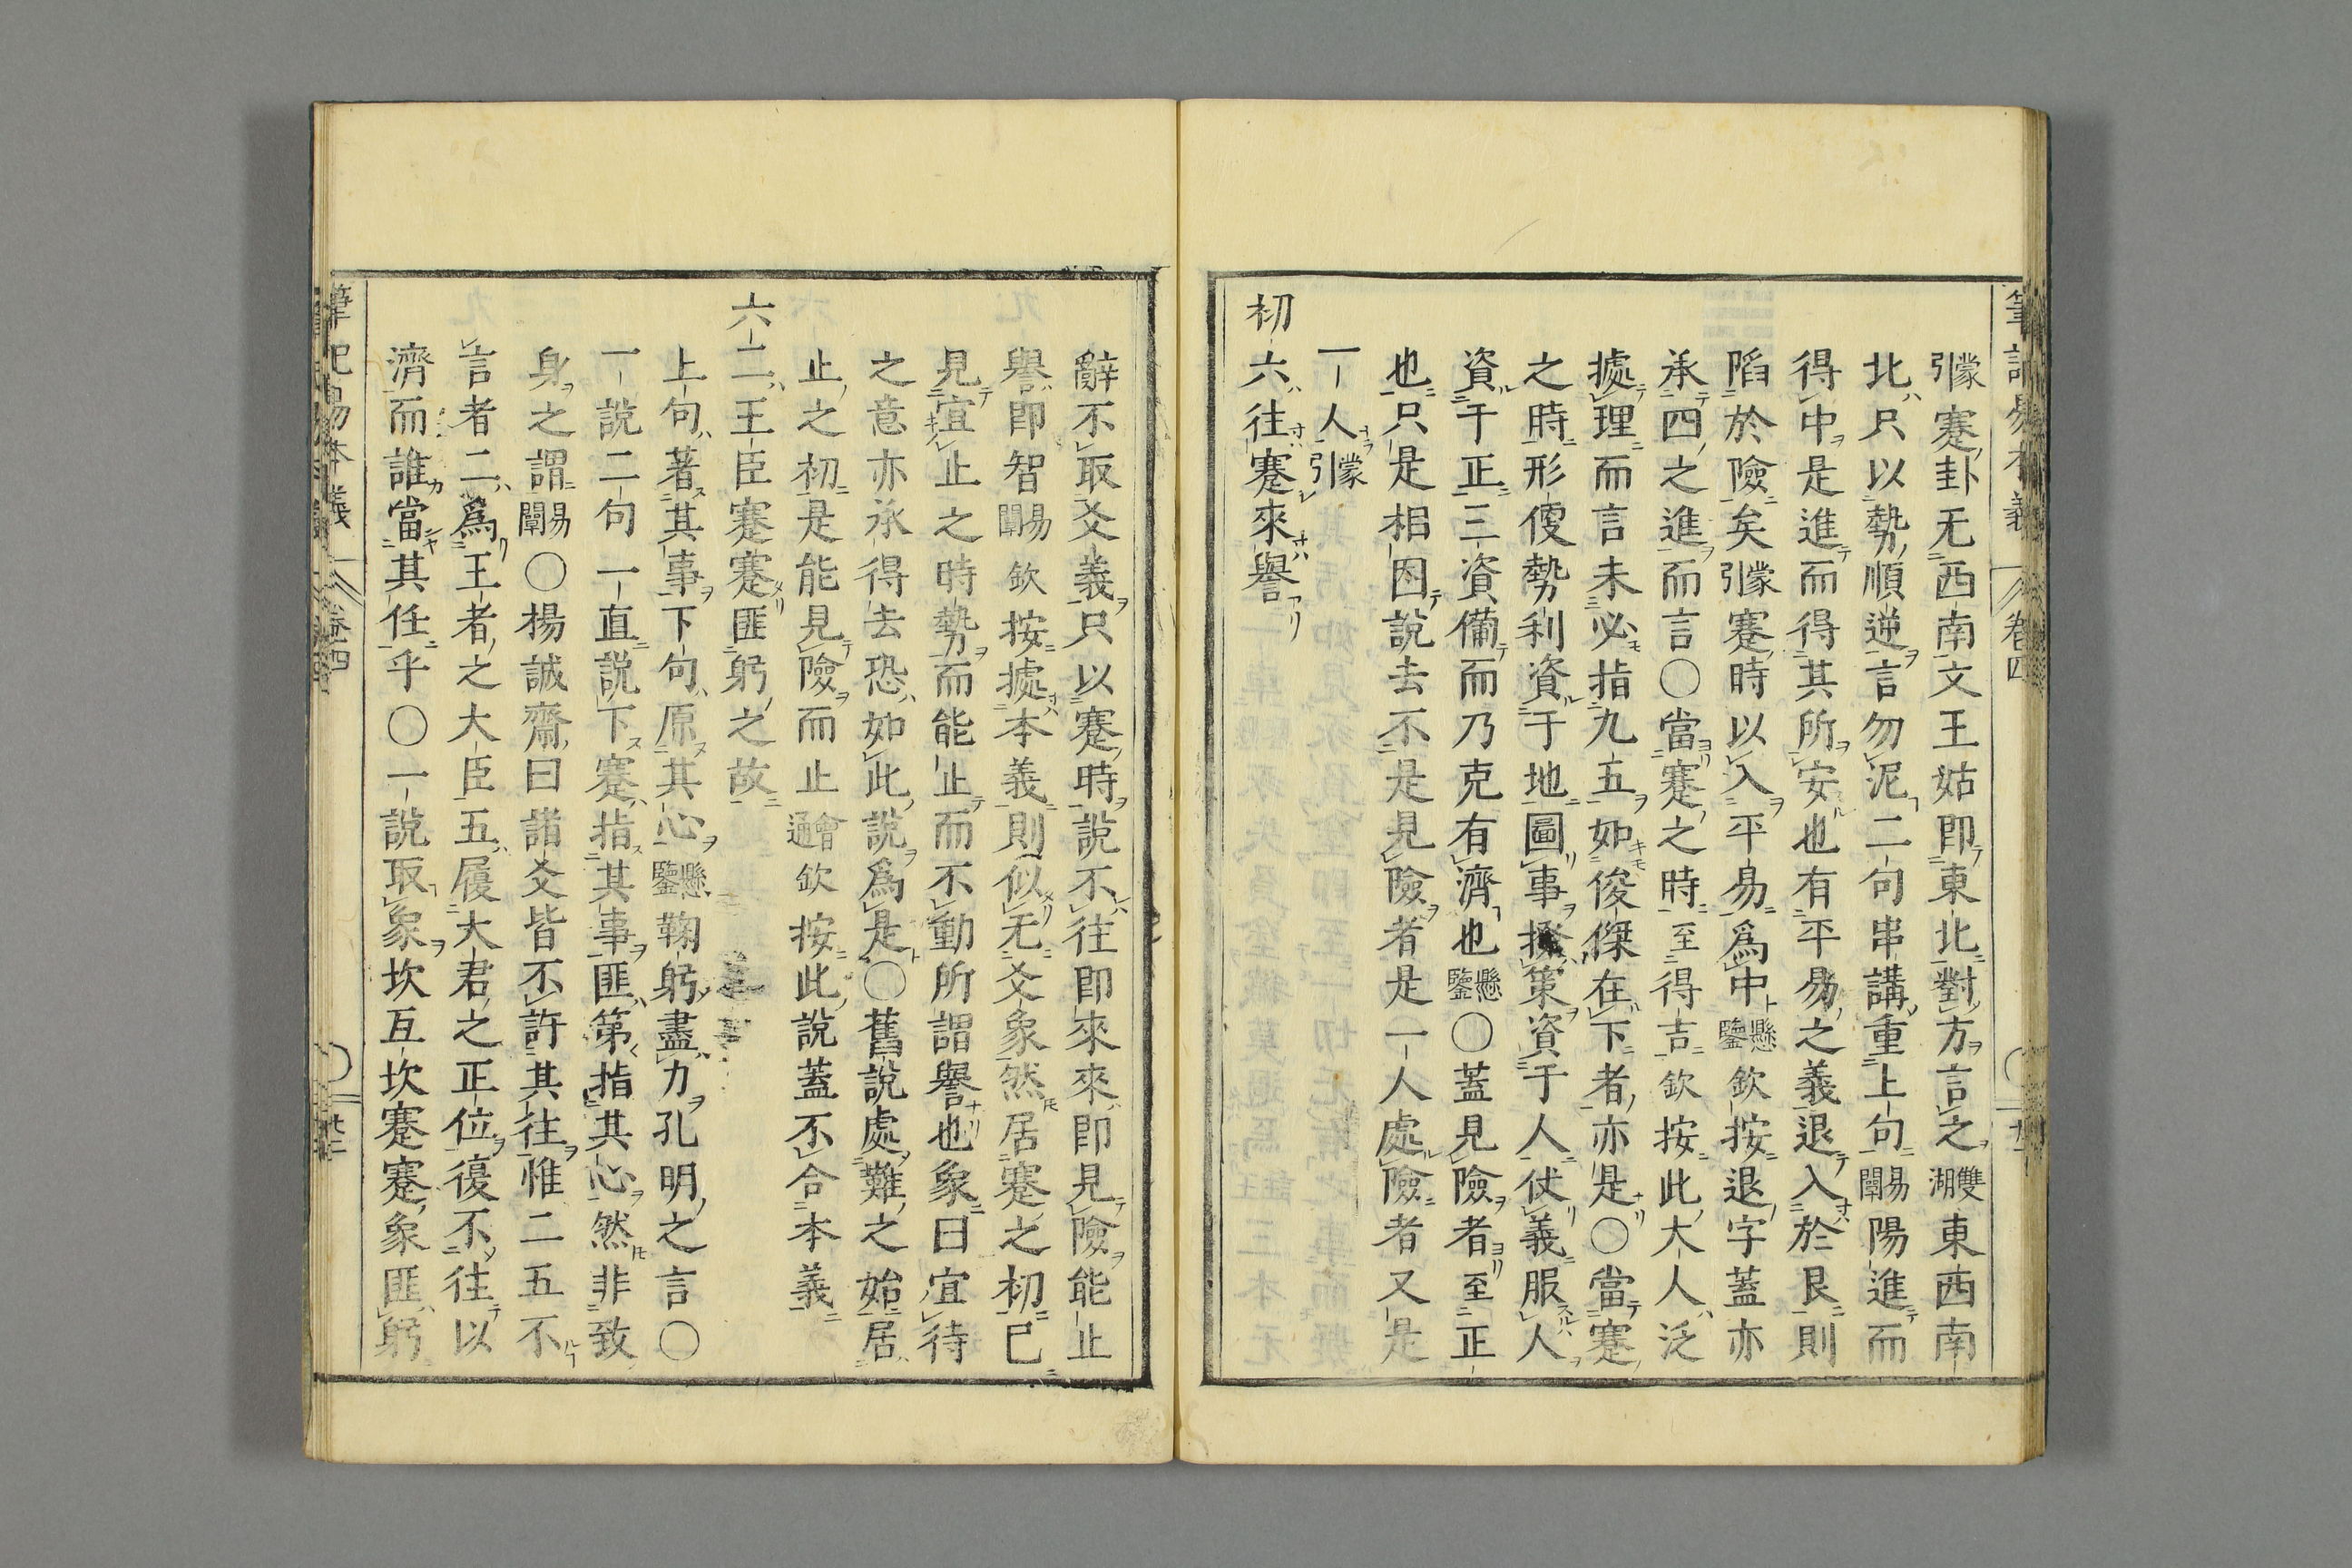 筆記易本義 卷四
蒙引蹇卦无西南文王姑即東北對方言之雙湖東西南
北只以勢順逆言勿泥二句串講重上句易闡陽進而
得中是進而得其所安也有平易之義退入於艮則
陷於險矣蒙引蹇時以入平易為中懸鑒欽按退字蓋亦
承四之進而言〇當蹇之時至得吉欽按此大人泛
據理而言未必指九五如俊傑在下者亦是〇當蹇
之時形便勢利資于地圖事揆策資于人仗義服人
資于正三資備而乃克有濟也懸鑒〇蓋見險者至正
也只是相因說去不是見險者是一人處險者又是
一人蒙引
初六往蹇來譽
辭不取爻義只以蹇時說不往即來來即見險能止
譽即智易闡欽按據本義則似无爻象然居蹇之初已
見宜止之時勢而能止而不動所謂譽也象曰宜待
之意亦承得去恐如此說為是〇舊說處難之始居
止之初是能見險而止會通欽按此說蓋不合本義
六二王臣蹇蹇匪躬之故
上句著其事下句原其心懸鑒鞠躬盡力孔明之言〇
一說二句一直說下蹇指其事匪第指其心然非致
身之謂易闡〇楊誠齋曰諸爻皆不許其往惟二五不
言者二為王者之大臣五履大君之正位復不往以
濟而誰當其任乎〇一說取象坎互坎蹇蹇象匪躬
筆記易本義 卷四